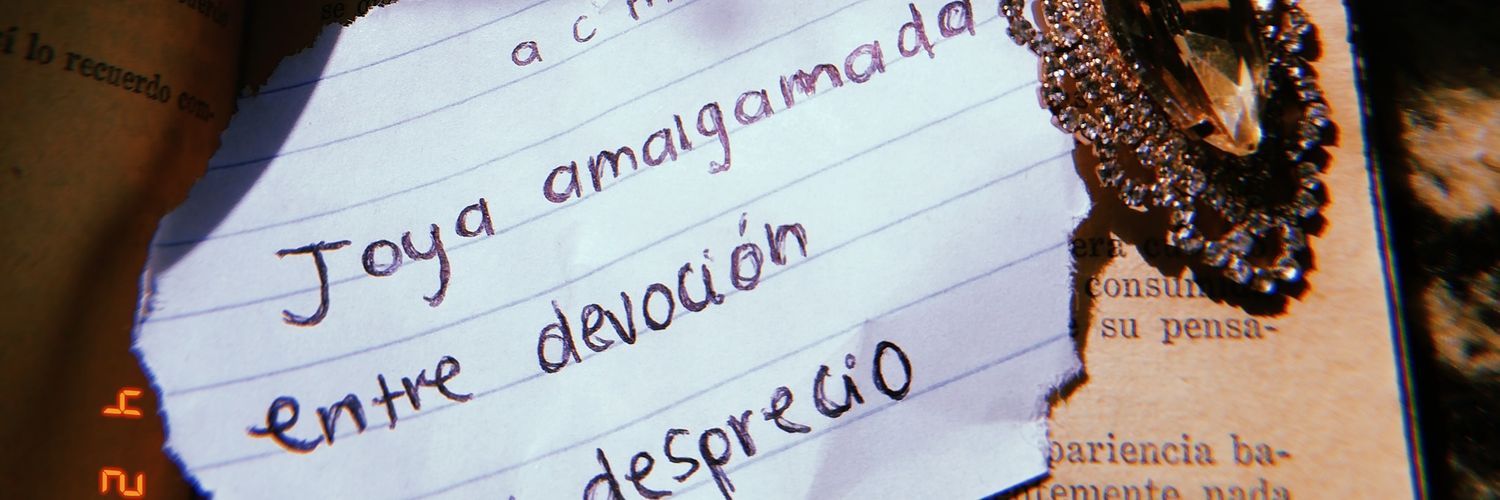 í lo recuerdo com-
a c m
Joya amalgamada
entre devoción
desprecio
su pensa-
pariencia ba-
temente nada
4
2